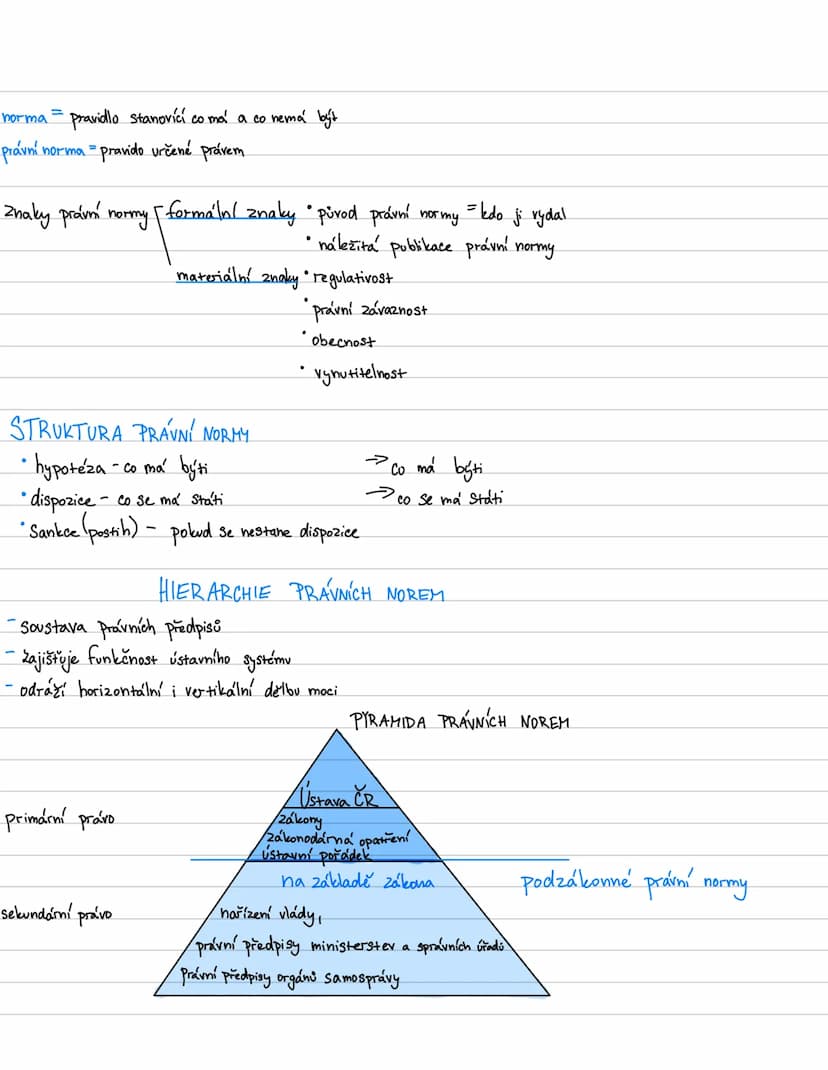 norma = pravidlo stanovící co má a co nemá být
právní norma = pravido určené právem
znaky právní normy formální znaky • původ právní normy = kdo ji vydal
• náležitá publikace právní normy
materiální znaky • regulativost
• právní závaznost
• obecnost
• vynutitelnost
STRUKTURA PRÁVNÍ NORMY
• hypotéza - co má býti → co má býti
• dispozice - co se má státi → co se má státi
• Sankce (postih) - pokud se nestane dispozice
HIERARCHIE PRÁVNÍCH NOREM
- soustava právních předpisů
- zajišťuje funkčnost ústavního systému
- odráží horizontální i vertikální dělbu moci
PYRAMIDA PRÁVNÍCH NOREM
Ústava ČR
primární právo zákony
zákonodárná opatření
ústavní pořádek
na základě zákona podzákonné právní normy
sekundární právo nařízení vlády,
právní předpisy ministerstev a správních úřadů
Právní předpisy orgánů samosprávy